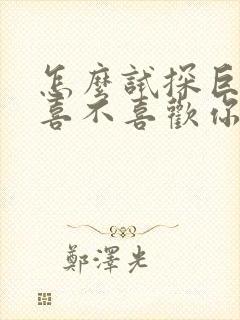 怎麼試探巨
喜不喜歡你
鄭澤光